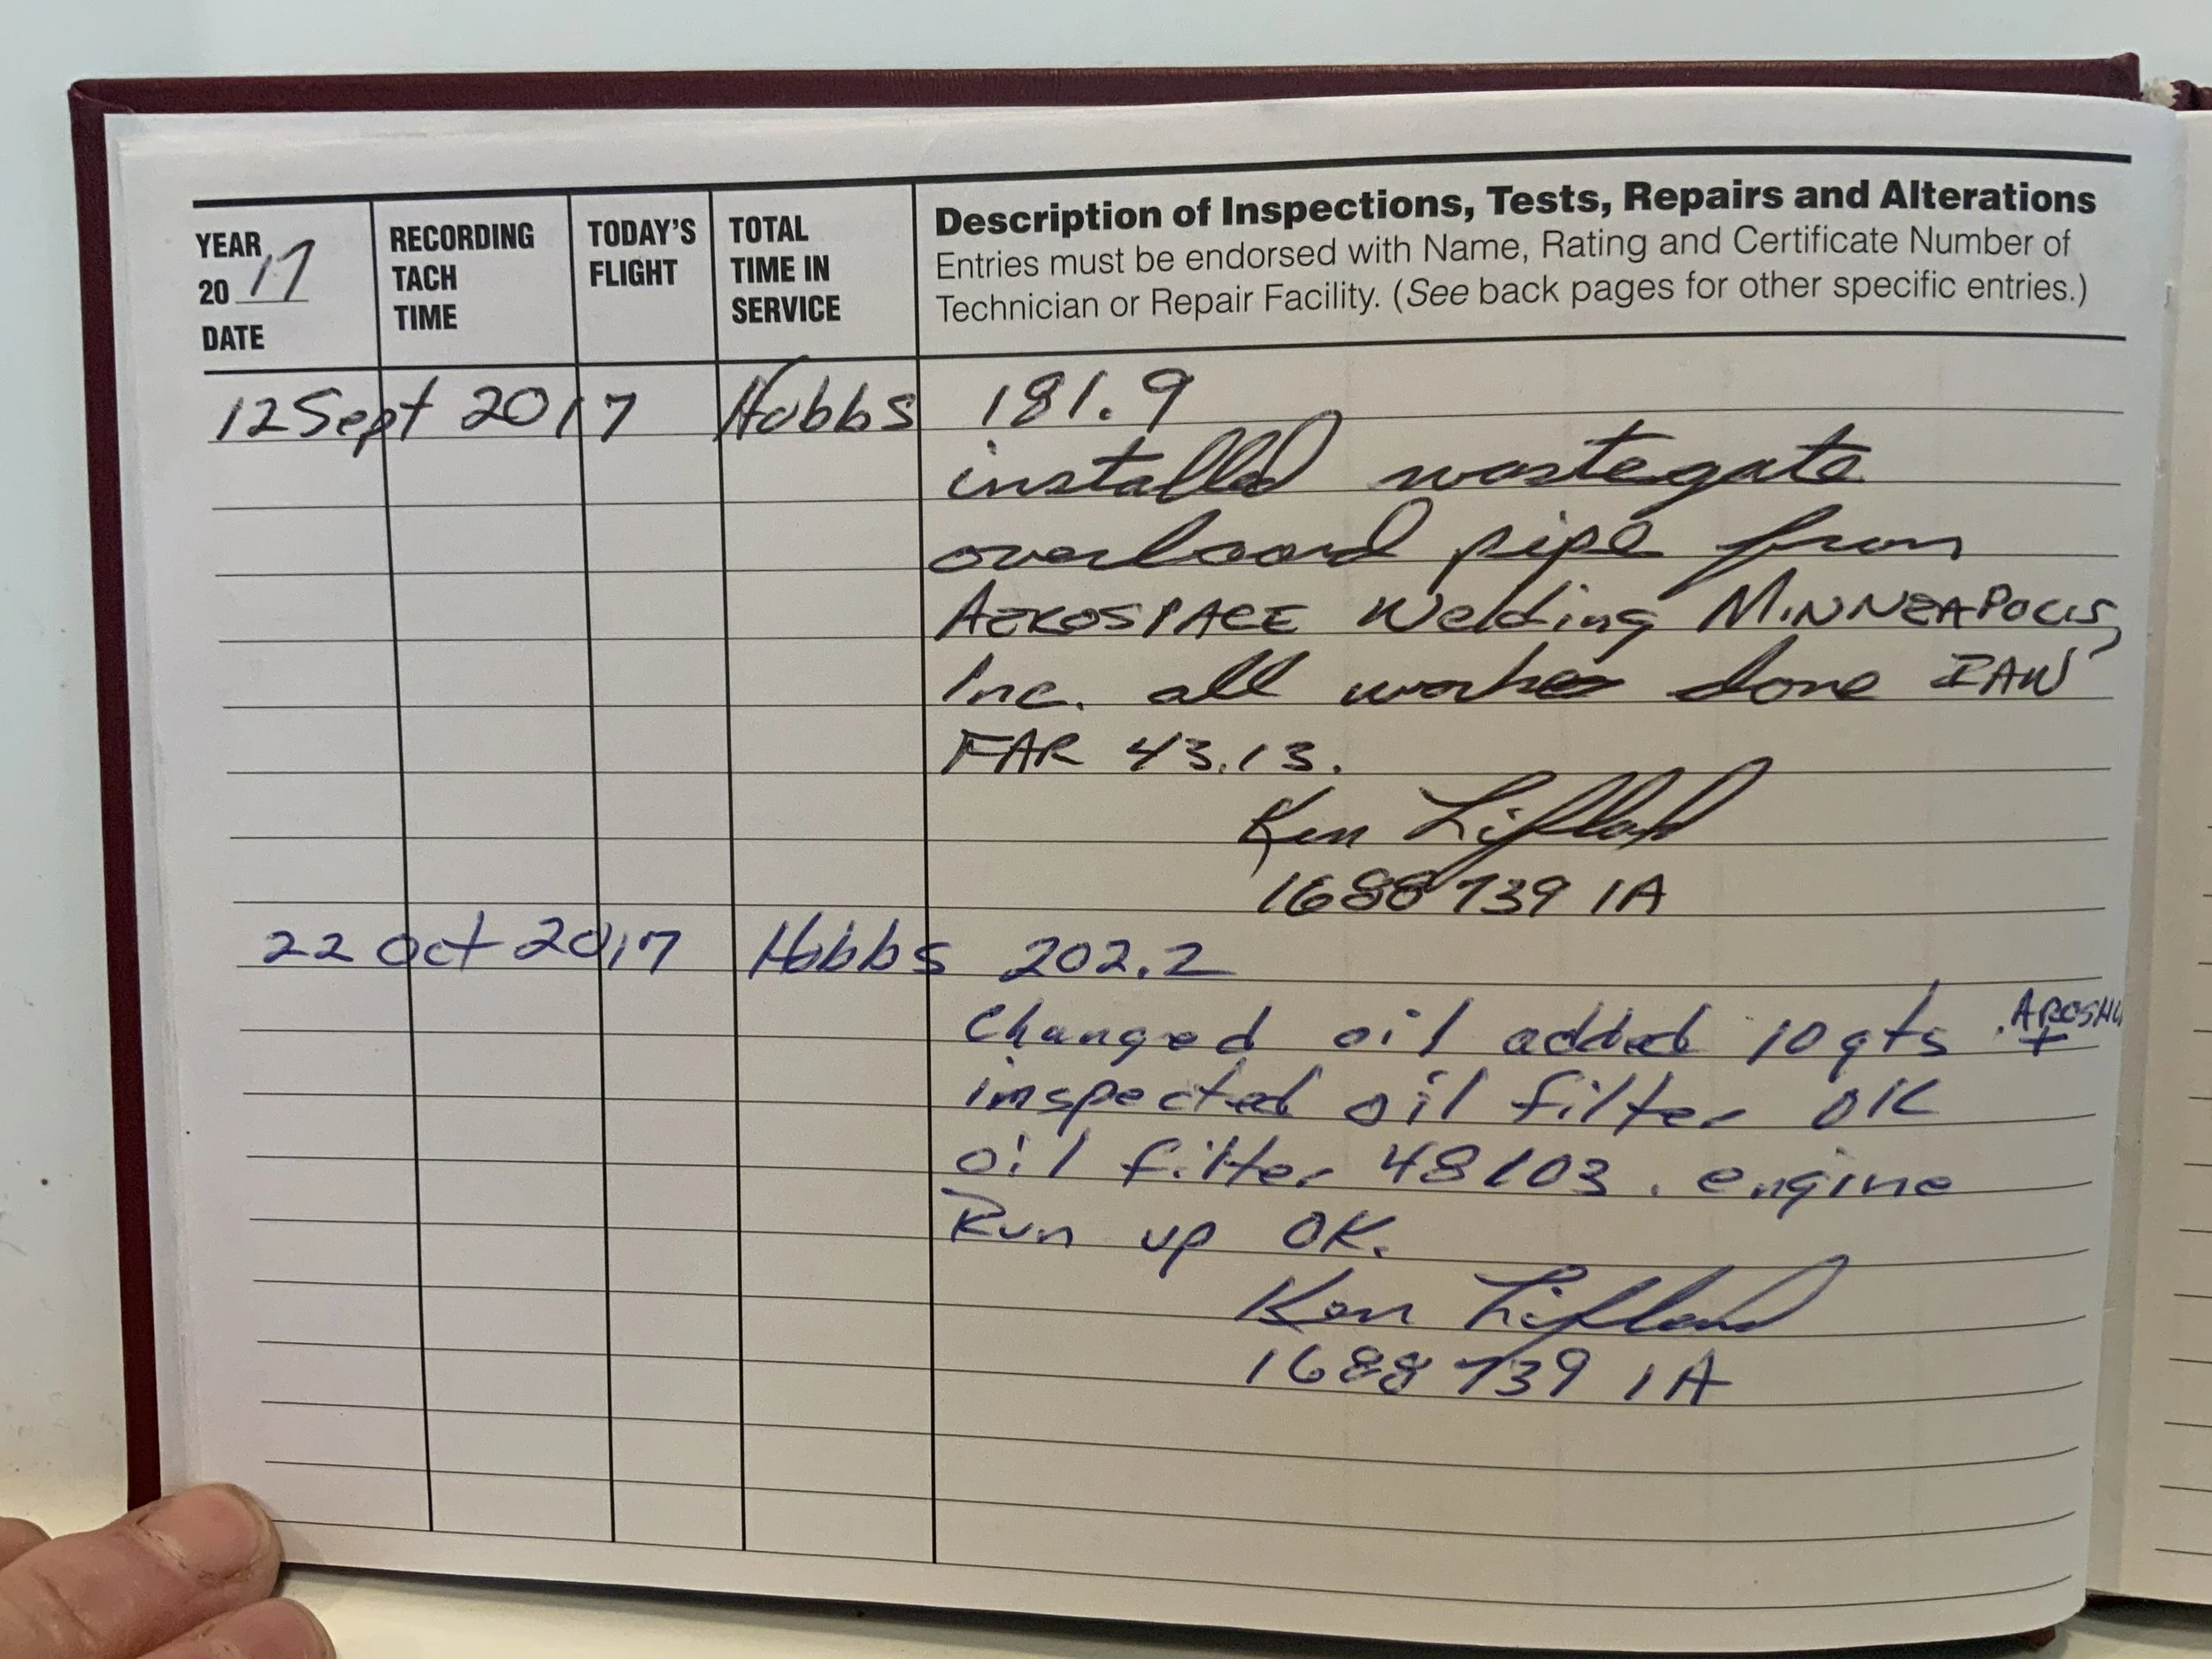 YEAR 20 17 DATE
RECORDING TACH TIME
TODAY'S FLIGHT
TOTAL TIME IN SERVICE
Description of Inspections, Tests, Repairs and Alterations
Entries must be endorsed with Name, Rating and Certificate Number of
Technician or Repair Facility. (See back pages for other specific entries.)
12 Sept 2017 Hobbs 181.9
installed wastegate
overboard pipe from
AEROSPACE Welding MINNEAPOLIS,
Inc. all work done IAW
FAR 43.13.
Ken Lifland
1688739 IA
22 Oct 2017 Hobbs 202.2
Changed oil added 10 qts +
inspected oil filter OK
oil filter 48103. engine
Run up OK.
Ken Lifland
1688739 IA